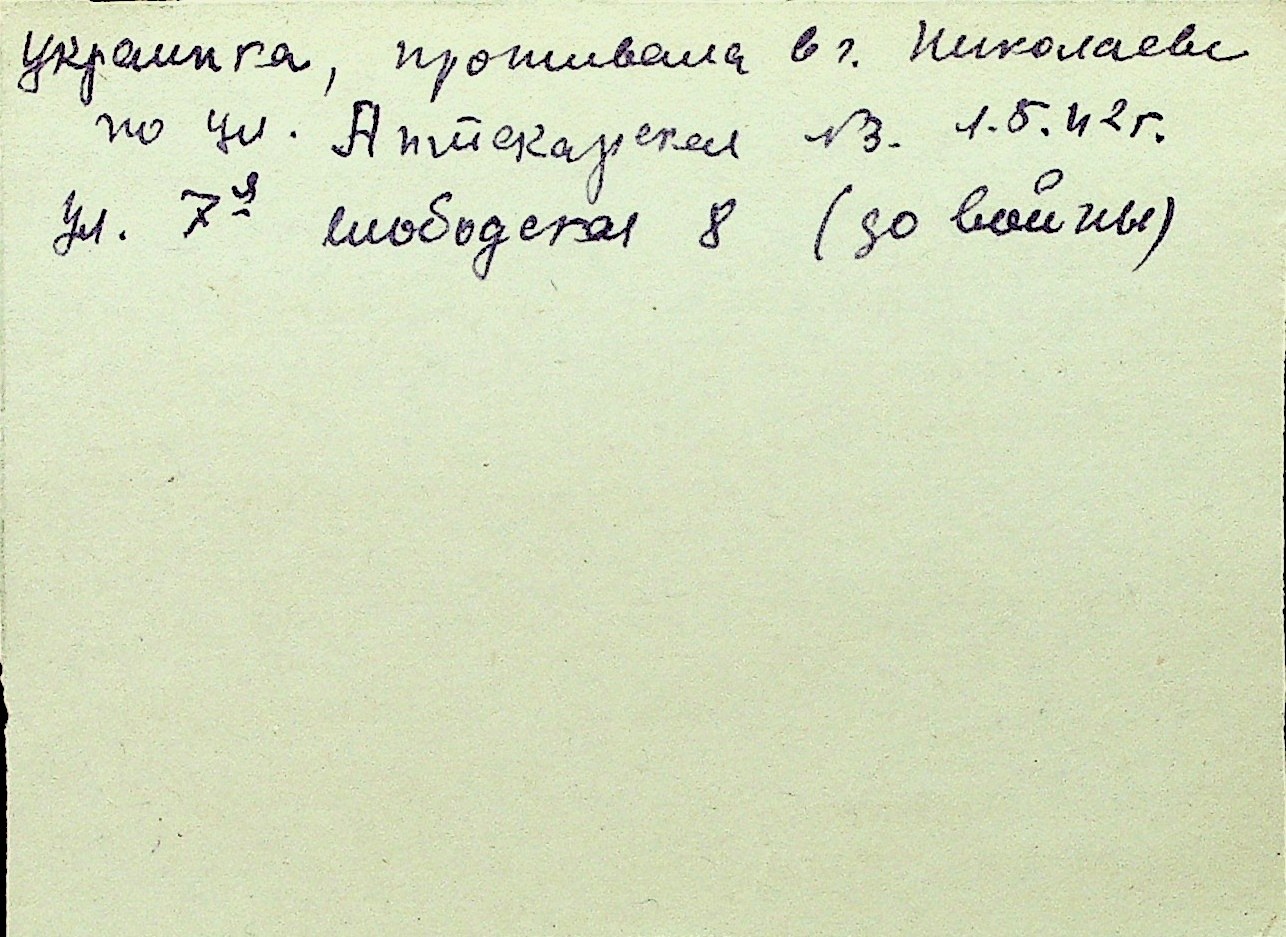 украинка, проживала в г. Николаеве
по ул. Аптекарская 13. 1.5.42г.
ул. 7я слободская 8 (до войны)